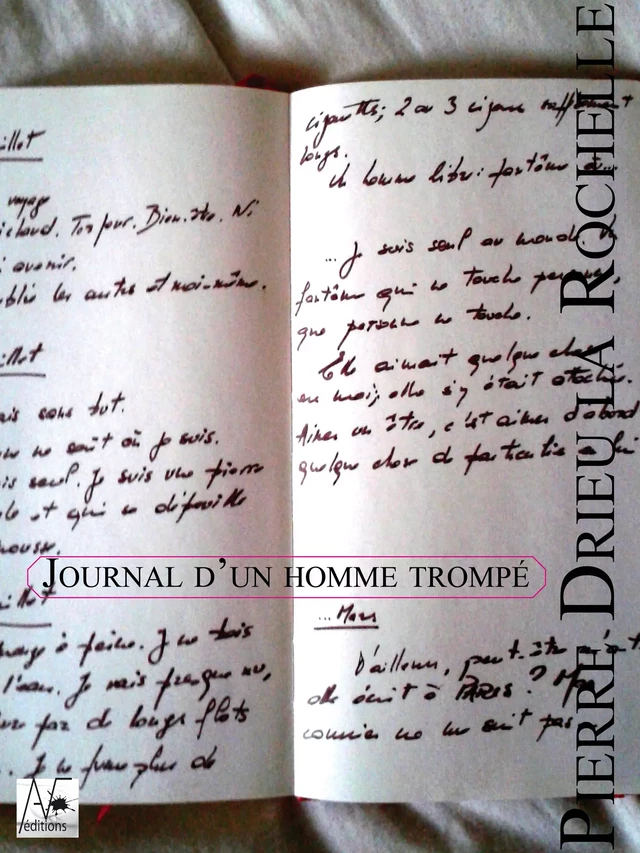 illet
voyage
ichaud. Ton pur. Bien-être. Ni
avenir.
ublié les autres et moi-même.
illet
ais sans but.
ne ne sait où je suis.
is seul. Je suis une pierre
le et qui se dépouille
mousse.
illet
mange à peine. Je ne bois
l'eau. Je vais presque nu,
par de longs flots
. Je ne fume plus de
cigarettes; 2 ou 3 cigares suffisamment
longs.
Un homme libre: fantôme
...Je suis seul au monde. Un
fantôme qui ne touche personne,
que personne ne touche.
Elle aimait quelque chose
en moi; elle s'y était attachée.
Aimer un être, c'est aimer d'abord
quelque chose de particulier à lui
...Mars
D'ailleurs, peut-être n'a-t-
elle écrit à PARIS? Mon
courrier ne me suit pas
JOURNAL D'UN HOMME TROMPÉ
PIERRE DRIEU LA ROCHELLE
AVF
éditions